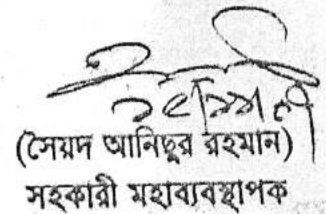 (সৈয়দ আনিছুর রহমান)
সহকারী মহাব্যবস্থাপক